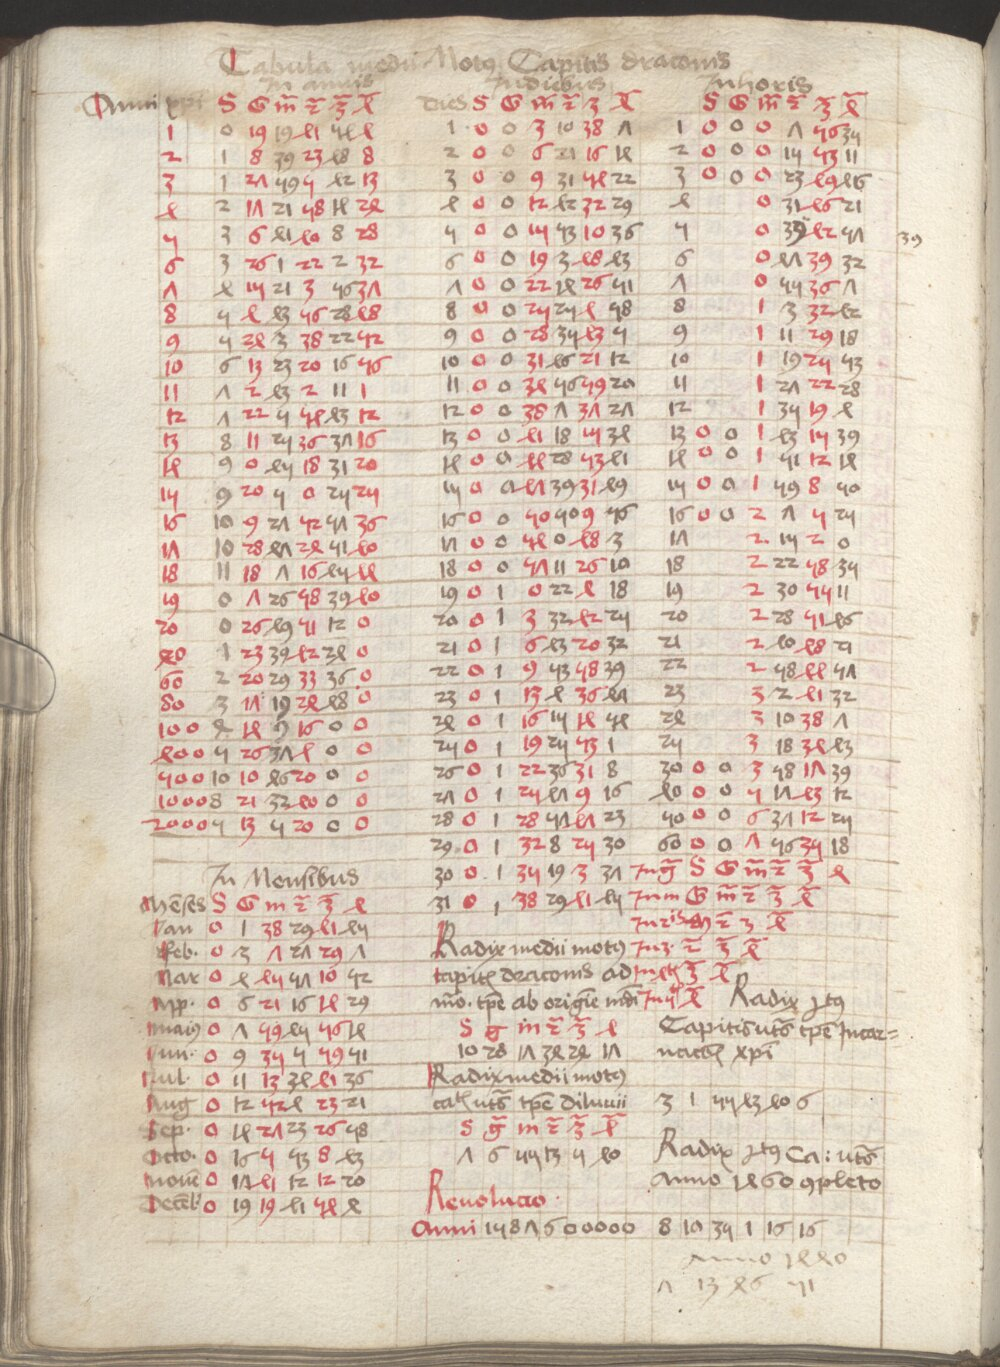 Tabula medii Motꝰ Capitis draconis
In annis
Anni xpi S G m̄ 2̄ 3̄ 4̄
1 0 19 19 41 54 4
2 1 8 39 23 48 8
3 1 27 59 5 42 13
4 2 17 21 58 14 24
5 3 6 41 40 8 28
6 3 26 1 22 2 32
7 4 15 21 3 56 37
8 5 4 43 56 28 48
9 5 24 3 38 22 52
10 6 13 23 20 16 56
11 7 2 43 2 11 1
12 7 22 5 54 43 12
13 8 11 25 36 37 16
14 9 0 45 18 31 20
15 9 20 5 0 25 25
16 10 9 27 52 57 36
17 10 28 47 24 51 40
18 11 18 7 16 45 44
19 0 7 26 58 39 40
20 0 26 49 51 12 0
40 1 23 39 42 24 0
60 2 20 29 33 36 0
80 3 17 19 24 48 0
100 4 14 9 16 0 0
400 5 26 37 4 0 0
500 10 10 46 20 0 0
1000 8 21 32 40 0 0
2000 5 13 5 20 0 0
In Mensibus
Mēses S G m 2̄ 3̄ 4
Jan 0 1 38 29 41 45
Feb. 0 3 7 27 29 7
Mar 0 4 45 57 10 52
Ap. 0 6 21 16 14 29
Maiꝰ 0 7 59 45 56 14
Jun. 0 9 35 5 59 51
Jul. 0 11 13 34 41 36
Aug 0 12 52 4 23 21
Sep. 0 14 27 23 26 58
Octo. 0 16 5 53 8 43
Novē 0 17 41 12 12 20
Decēb 0 19 19 41 54 4
In diebus
Dies S G m̄ 2̄ 3 4̄
1 0 0 3 10 38 7
2 0 0 6 21 16 14
3 0 0 9 31 54 22
4 0 0 12 42 32 29
5 0 0 15 53 10 36
6 0 0 19 3 48 43
7 0 0 22 14 26 51
8 0 0 25 25 4 58
9 0 0 28 35 43 5
10 0 0 31 46 21 12
11 0 0 34 56 59 20
12 0 0 38 7 37 27
13 0 0 41 18 15 34
14 0 0 44 28 53 41
15 0 0 47 39 31 49
16 0 0 50 50 9 56
17 0 0 54 0 48 3
18 0 0 57 11 26 10
19 0 1 0 22 4 18
20 0 1 3 32 42 25
21 0 1 6 43 20 32
22 0 1 9 53 58 39
23 0 1 13 4 36 47
24 0 1 16 15 14 54
25 0 1 19 25 53 1
26 0 1 22 36 31 8
27 0 1 25 47 9 16
28 0 1 28 57 47 23
29 0 1 32 8 25 30
30 0 1 35 19 3 37
31 0 1 38 29 41 45
Radix medii motꝰ
capitꝭ draconis ad
mō. tp̄e ab origīe mūdi
S g m̄ 2̄ 3̄ 4
10 28 17 34 24 17
Radix medii motꝰ
tp̄e diluvii
S ḡ m 2̄ 3̄ 4̄
7 6 55 13 5 40
Revolucio.
Anni 1587600000
In horis
S G m̄ 2̄ 3̄ 4̄
1 0 0 0 7 56 35
2 0 0 0 15 53 11
3 0 0 0 23 49 46
4 0 31 46 21
5 0 39 42 57 39
6 0 47 39 32
7 0 55 36 7
8 1 3 32 42
9 1 11 29 18
10 1 19 25 53
11 1 27 22 28
12 1 35 19 4
13 0 0 1 43 15 39
14 0 0 1 51 12 14
15 0 0 1 59 8 50
16 0 0 2 7 5 25
17 2 15 2 0
18 2 22 58 35
19 2 30 55 11
20 2 28 51 46
21 2 40 48 21
22 2 58 44 57
23 3 2 41 32
24 3 10 38 7
25 3 18 34 43
30 0 0 3 58 17 39
40 0 0 5 17 43 12
50 0 0 6 37 12 25
60 0 0 7 56 35 18
In ḡ S G m̄ 2̄ 3̄ 4
In m G m̄ 2̄ 3̄ 4̄
m 2̄ 3 4̄
In 3. 2̄ 3̄ 4̄
3̄ 4̄
4̄
Radix
Capitis tp̄e Incar=
xpi
3 1 55 43 40 6
Radix Ca:
Anno 1460 ꝯpleto
8 10 35 1 16 16
Anno 1440
7 13 46 51